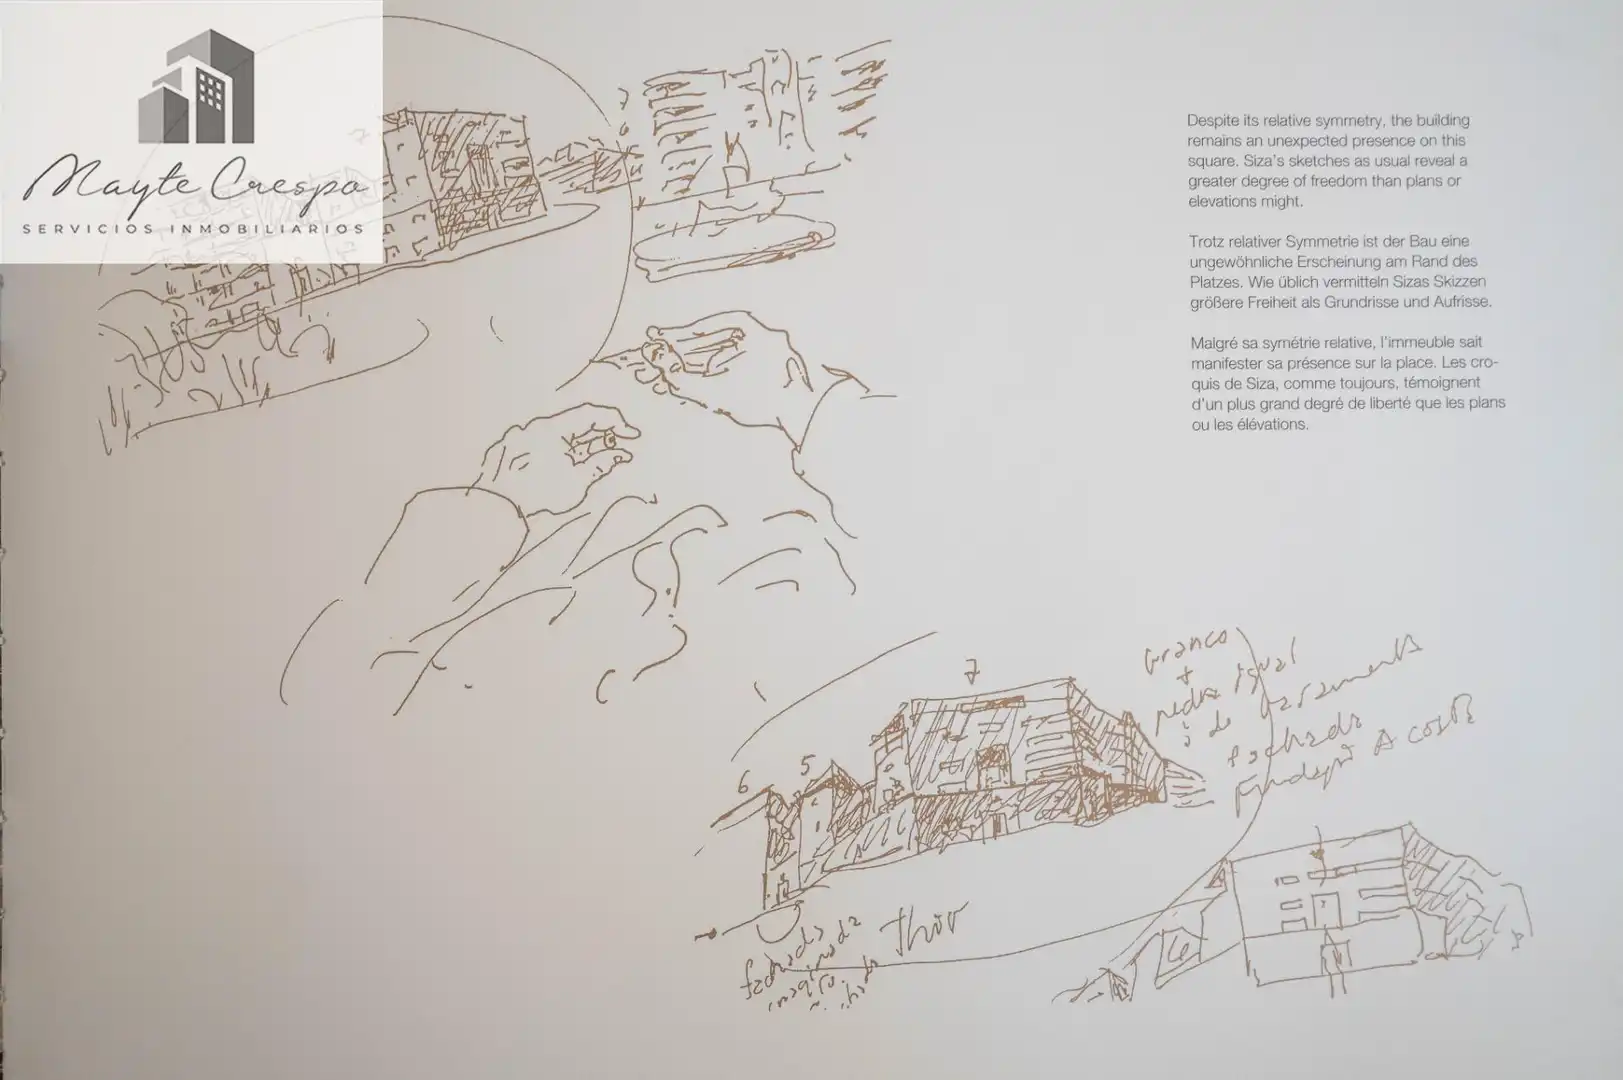 Mayte Crespo
SERVICIOS INMOBILIARIOS
Despite its relative symmetry, the building
remains an unexpected presence on this
square. Siza's sketches as usual reveal a
greater degree of freedom than plans or
elevations might.
Trotz relativer Symmetrie ist der Bau eine
ungewöhnliche Erscheinung am Rand des
Platzes. Wie üblich vermitteln Sizas Skizzen
größere Freiheit als Grundrisse und Aufrisse.
Malgré sa symétrie relative, l'immeuble sait
manifester sa présence sur la place. Les cro-
quis de Siza, comme toujours, témoignent
d'un plus grand degré de liberté que les plans
ou les élévations.
7
6
7
5
6
branco
+
pedra igual
fachada